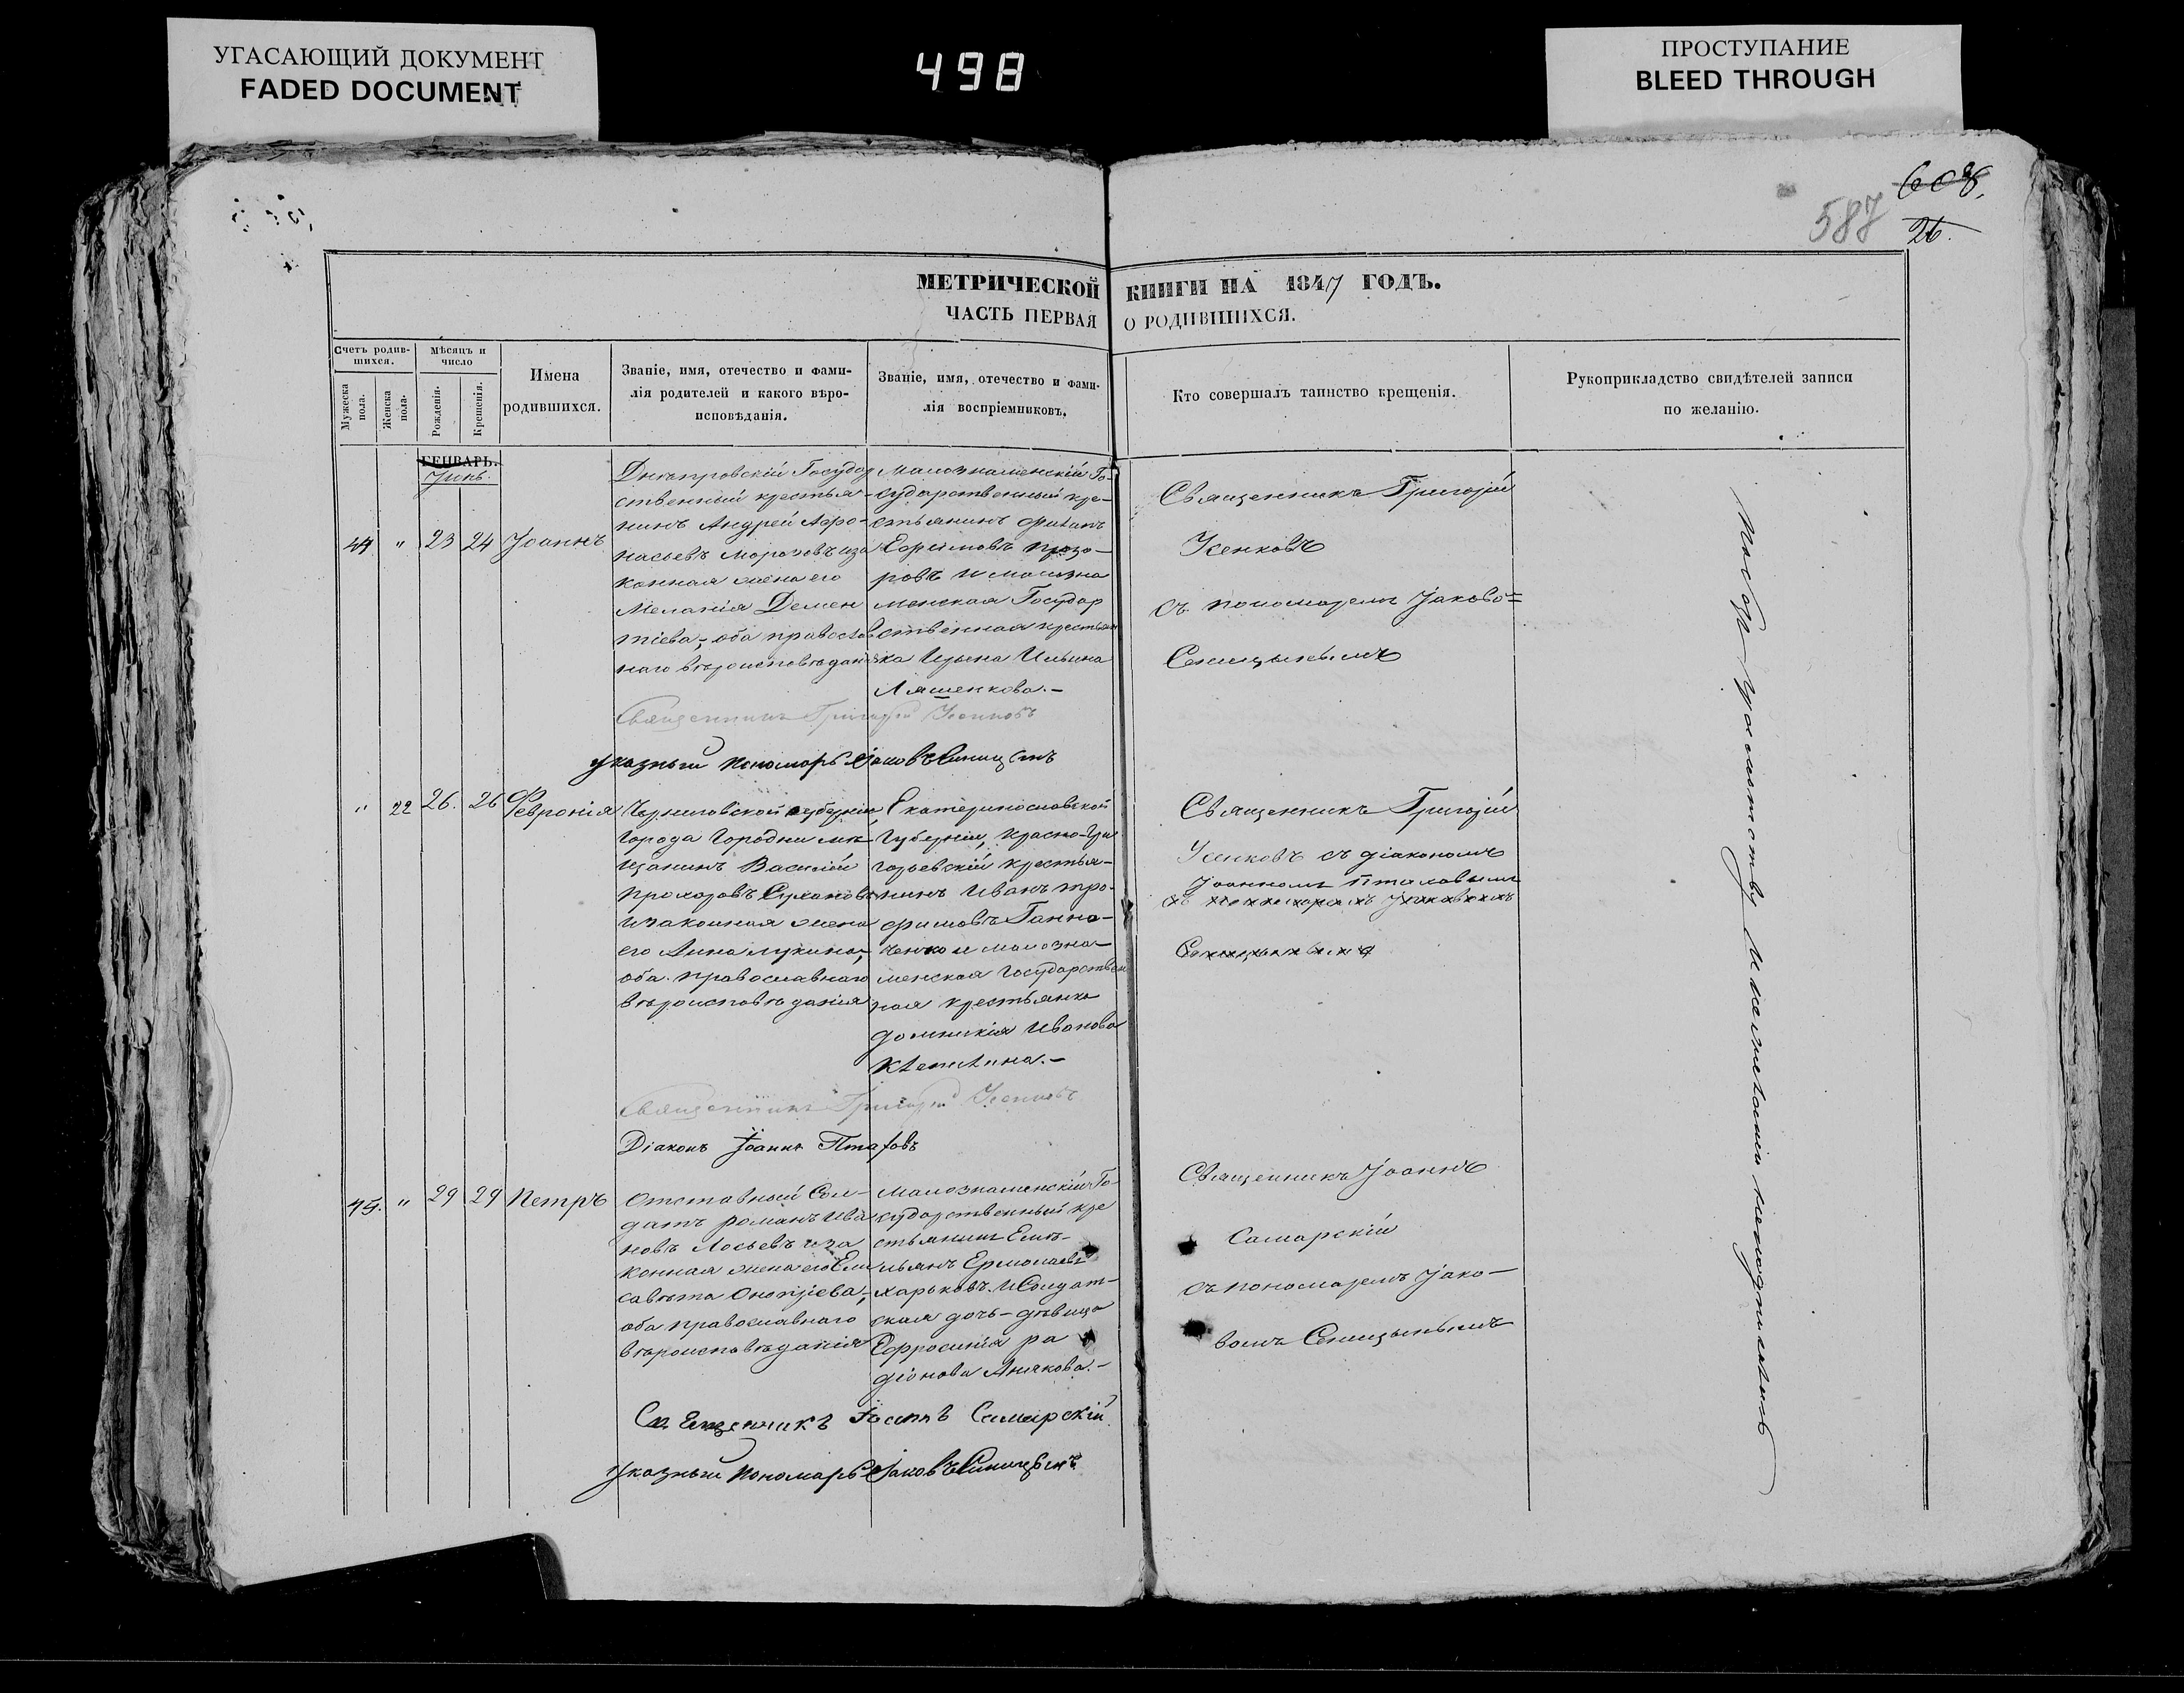 УГАСАЮЩИЙ ДОКУМЕНТ
FADED DOCUMENT
498
ПРОСТУПАНИЕ
BLEED THROUGH
608.
587
26.
МЕТРИЧЕСКОЙ КНИГИ НА 1847 ГОДЪ.
ЧАСТЬ ПЕРВАЯ О РОДИВШИХСЯ.
Счетъ родив-
шихся.
Мужеска
пола.
Женска
пола.
Мѣсяцъ и
число
Рожденія.
Крещенія.
Имена
родившихся.
Званіе, имя, отечество и фами-
лія родителей и какого вѣро-
исповѣданія.
Званіе, имя, отечество и фами-
лія воспріемниковъ.
Кто совершалъ таинство крещенія.
Рукоприкладство свидѣтелей записи
по желанію.
ГЕНВАРЬ.
Іунь.
44 " 23 24 Іоаннъ
Днѣпровскій Государ
ственный крестья-
нинъ Андрей Афо-
насьевъ Морозовъ иза
конная жена его
Меланія Демен
тіева; оба православ
наго вѣроисповѣданія
Малознаменскій Го-
сударственный кре-
стьянинъ Филипъ
Ефимовъ
ровъ и малозна
менская Государ
ственная крестьян
ка Ирина Ильина
Ляшенкова.-
Священникъ Григорій
Усенковъ
съ пономаремъ Іаково=
Синицынымъ
Священникъ Григорій Усенковъ
указный пономарь Іаковъ Синицынъ
" 22 26. 26 Февронія
Черниговской губерніи
города Городни мѣ-
щанинъ Василій
Прохоровъ
изаконная жена
его Анна Лукина,
оба православнаго
вѣроисповѣданія
Екатеринославской
Губерніи, Красно-Гри
горьевскій крестья-
нинъ Иванъ Тро-
фимовъ Ганно-
ченко и малозна-
менская Государствен
ная крестьянка
Домникія Иванова
Клепилина.-
Священникъ Григорій
Усенковъ съ діакономъ
Іоанномъ Птаховымъ
съ пономаремъ Іаковомъ
Синицынымъ
Священникъ Григорій Усенковъ
Діаконъ Іоаннъ Птаховъ
45. " 29 29 Петръ
Отставный Сол-
датъ Романъ Ива
новъ Лосьевъ иза
конная жена его Ели
савѣта Онопріева;
оба православнаго
вѣроисповѣданія
Малознаменскій Го-
сударственный кре
стьянинъ Емѣ-
льянъ Ермолаевъ
Харьковъ. и Солдат-
ская дочь-дѣвица
Ефросинія Ра
діонова Анякова.-
Священникъ Іоаннъ
Самарскій
съ пономаремъ Іако-
вомъ Синицынымъ
Священникъ Іоаннъ Самарскій
указный пономарь Іаковъ Синицынъ